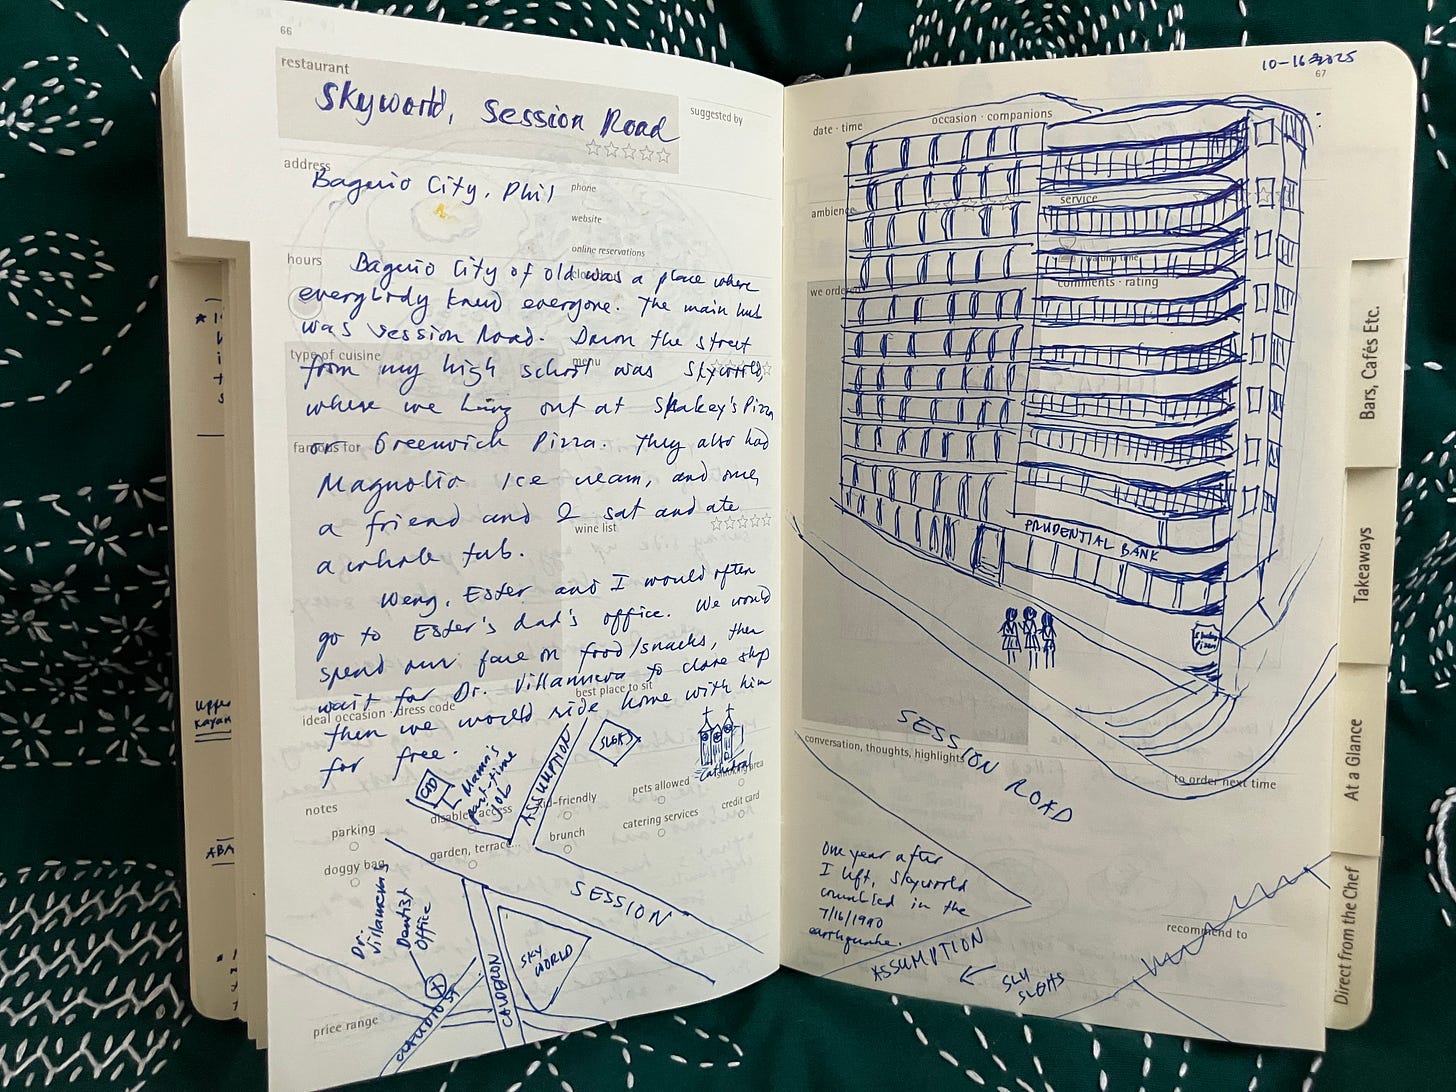 66
restaurant
Skyworld, Session Road
suggested by
address
Baguio City, Phil
phone
website
online reservations
hours
Baguio City of old was a place where
everybody knew everyone. The main hub
was Session Road. Down the street
type of cuisine
menu
from my high school was Skyworld,
where we hung out at Shakey's Pizza
famous for
or Greenwich Pizza. They also had
Magnolia Ice cream, and once
a friend and I sat and ate
wine list
a whole tub.
Weng, Ester and I would often
go to Ester's dad's office. We would
spend our fare on food/snacks, then
wait for Dr. Villanueva to close shop
best place to sit
ideal occasion · dress code
then we would ride home with him
for free.
Mama's
part-time
job
ASSUMPTION
SLGHS
Cathedral
notes
parking
doggy bag
disabled access
garden, terrace...
kid-friendly
brunch
pets allowed
catering services
smoking area
credit card
Dr.
Villanueva's
Dentist
Office
SESSION
SKY
WORLD
CALDERON
price range
10-16-2025
67
date · time
occasion · companions
ambience
service
we ordered
comments · rating
PRUDENTIAL BANK
Shakey
Pizza
SESSION ROAD
conversation, thoughts, highlights
to order next time
One year after
I left, Skyworld
crumbled in the
7/16/1990
earthquake.
ASSUMPTION
SLU
SLGHS
recommend to
Bars, Cafés Etc.
Takeaways
At a Glance
Direct from the Chef
upper
ABA